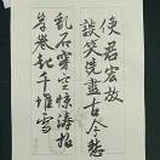 使君宏放
談笑洗盡古今愁
乱石穿空惊涛拍
岸卷起千堆雪